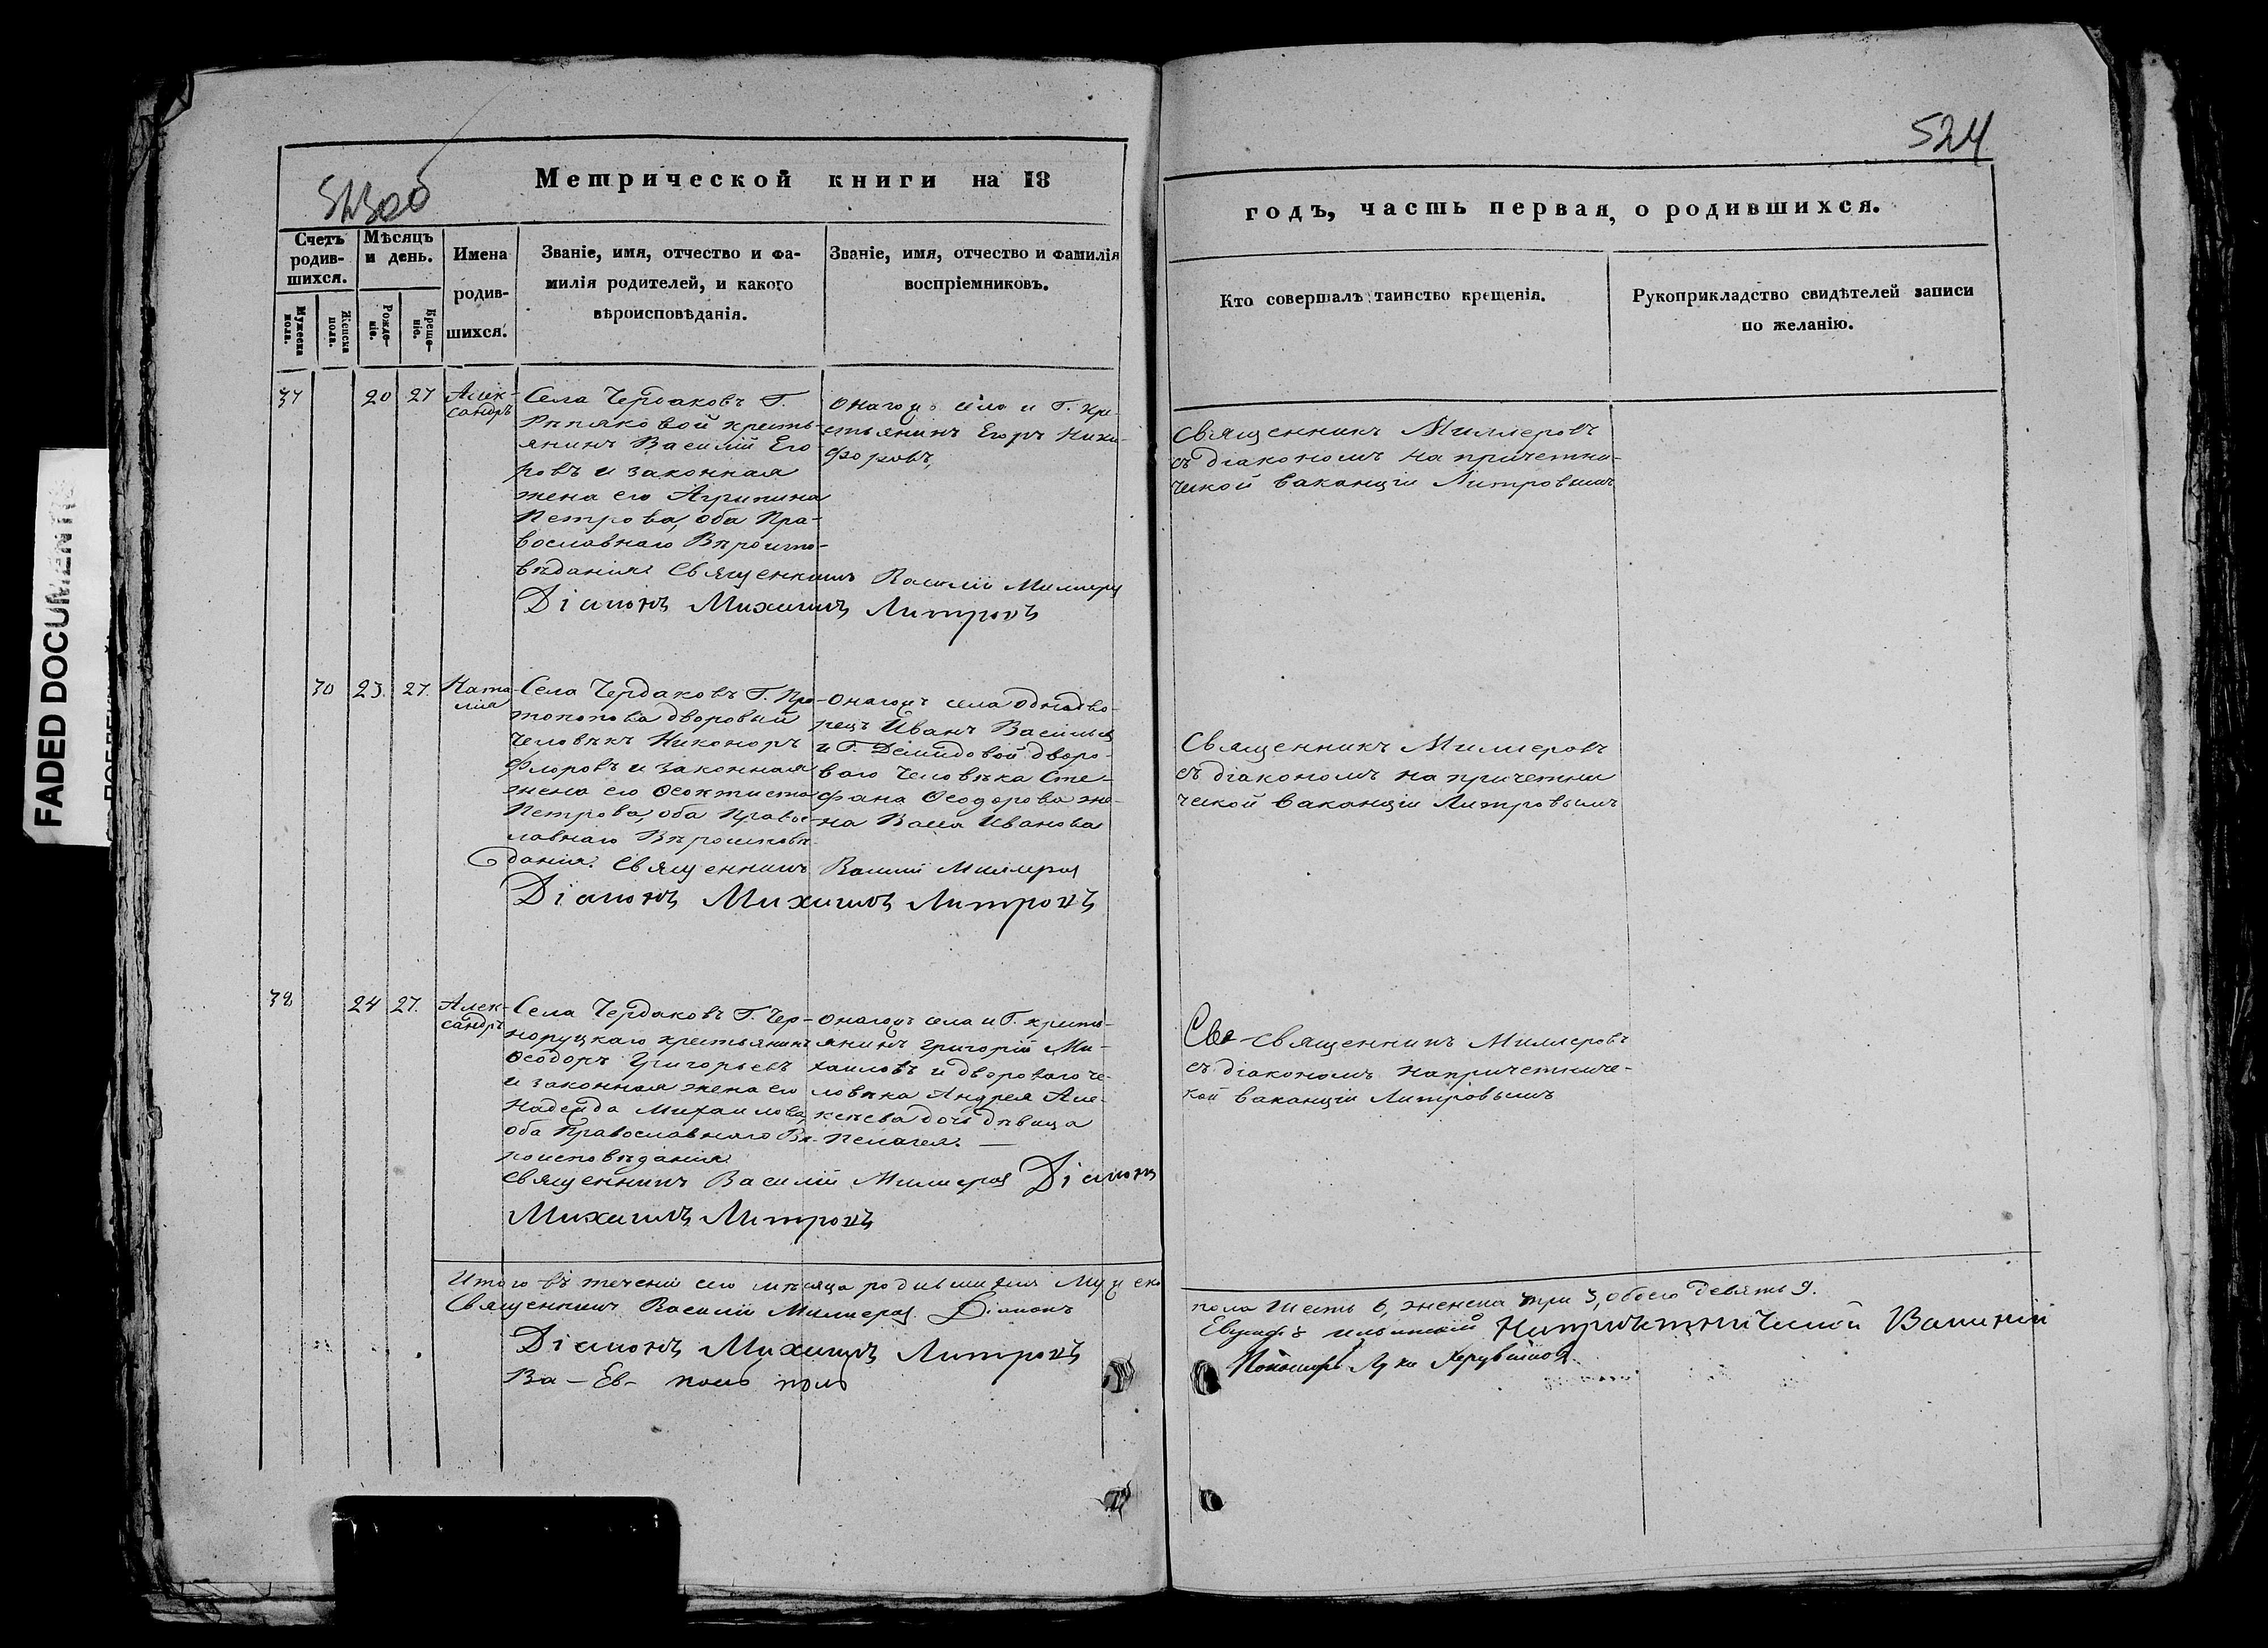 524
Метрической книги на 18
годъ, часть первая, о родившихся.
Счетъ родившихся.
Мѣсяцъ и день.
Имена родившихся.
Званіе, имя, отчество и фамилія родителей, и какого вѣроисповѣданія.
Званіе, имя, отчество и фамилія воспріемниковъ.
Кто совершалъ таинство крещенія.
Рукоприкладство свидѣтелей записи по желанію.
Мужеска пола.
Женска пола.
Рожденіе.
Крещеніе.
37
20
27
Алек-
сандръ
Села Чердаковъ Г.
кресть-
янинъ Василій Его
ровъ и законная
жена его Агрипина
Петрова, оба Пра-
вославнаго Вѣроиспо-
вѣданія. Священникъ Василій Миллеровъ
Діаконъ Михаилъ Литровъ
Онагожъ села и Г. кре-
стьянинъ Егоръ Ники-
форовъ,
Священникъ Миллеровъ
съ діакономъ на причетни-
ческой ваканціи Литровымъ
30
23.
27.
Ната-
лія
Села Чердаковъ Г. Про-
топопова дворовый
человѣкъ Никоноръ
Флоровъ и законная
жена его Ѳеоктиста
Петрова, оба Правос-
лавнаго Вѣроисповѣ-
данія. Священникъ Василій Миллеровъ
Діаконъ Михаилъ Литровъ
Онагожъ села однодво-
рецъ Иванъ Васильевъ
и Г. Демидовой дворо-
ваго человѣка Сте-
фана Ѳеодорова же-
на Васса Иванова
Священникъ Миллеровъ
съ діакономъ на причетни
ческой ваканціи Литровымъ
38
24
27.
Алек-
сандръ
Села Чердаковъ Г. Чер-
норуцкаго крестьянинъ
Ѳеодоръ Григорьевъ
и законная жена его
Надежда Михаилова,
оба Православнаго Вѣ-
роисповѣданія.
Священникъ Василій Миллеровъ Діаконъ
Михаилъ Литровъ
Онагожъ села и Г. кресть-
янинъ Григорій Ми-
хаиловъ и двороваго че-
ловѣка Андрея Але-
ксѣева дочь дѣвица
Пелагея. —
Све Священникъ Миллеровъ
съ діакономъ на причетниче-
кой ваканціи Литровымъ
Итого въ теченіи сего мѣсяца родившихся Мужеска
пола Шесть 6, женска три 3, обоего девять 9.
Священникъ Василій Миллеровъ Діаконъ
Евграфъ
Діаконъ Михаилъ Литровъ
На причетнической Ваканіи
Пономарь Лука Херувимовъ